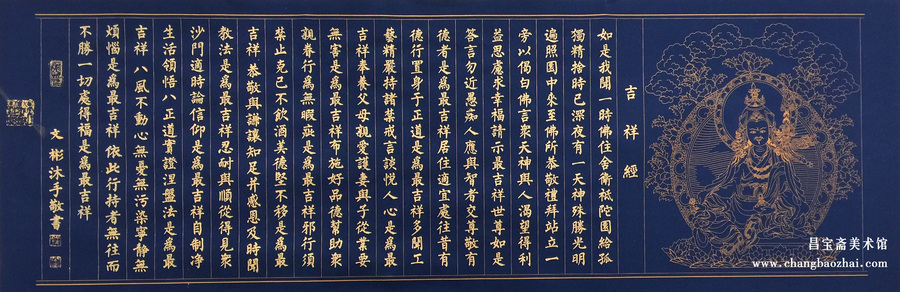 吉祥經
如是我聞一時佛住舍衛祗陀園給孤
獨精捨時已深夜有一天神殊勝光明
遍照園中來至佛所恭敬禮拜站立一
旁以偈白佛言衆天神與人渴望得利
益思慮求幸福請示最吉祥世尊如是
答言勿近愚癡人應與智者交尊敬有
德者是為最吉祥居住適宜處往昔有
德行置身于正道是為最吉祥多聞工
藝精嚴持諸禁戒言談悅人心是為最
吉祥奉養父母親愛護妻與子從業要
無害是為最吉祥布施好品德幫助衆
親眷行為無瑕疵是為最吉祥邪行須
禁止克己不飲酒美德堅不移是為最
吉祥恭敬與謙讓知足并感恩及時聞
教法是為最吉祥忍耐與順從得見衆
沙門適時論信仰是為最吉祥自制净
生活領悟八正道實證涅盤法是為最
吉祥八風不動心無憂無污染寧靜無
煩惱是為最吉祥依此行持者無往而
不勝一切處得福是為最吉祥
文彬沐手敬書
昌宝斋美术馆
www.changbaozhai.com